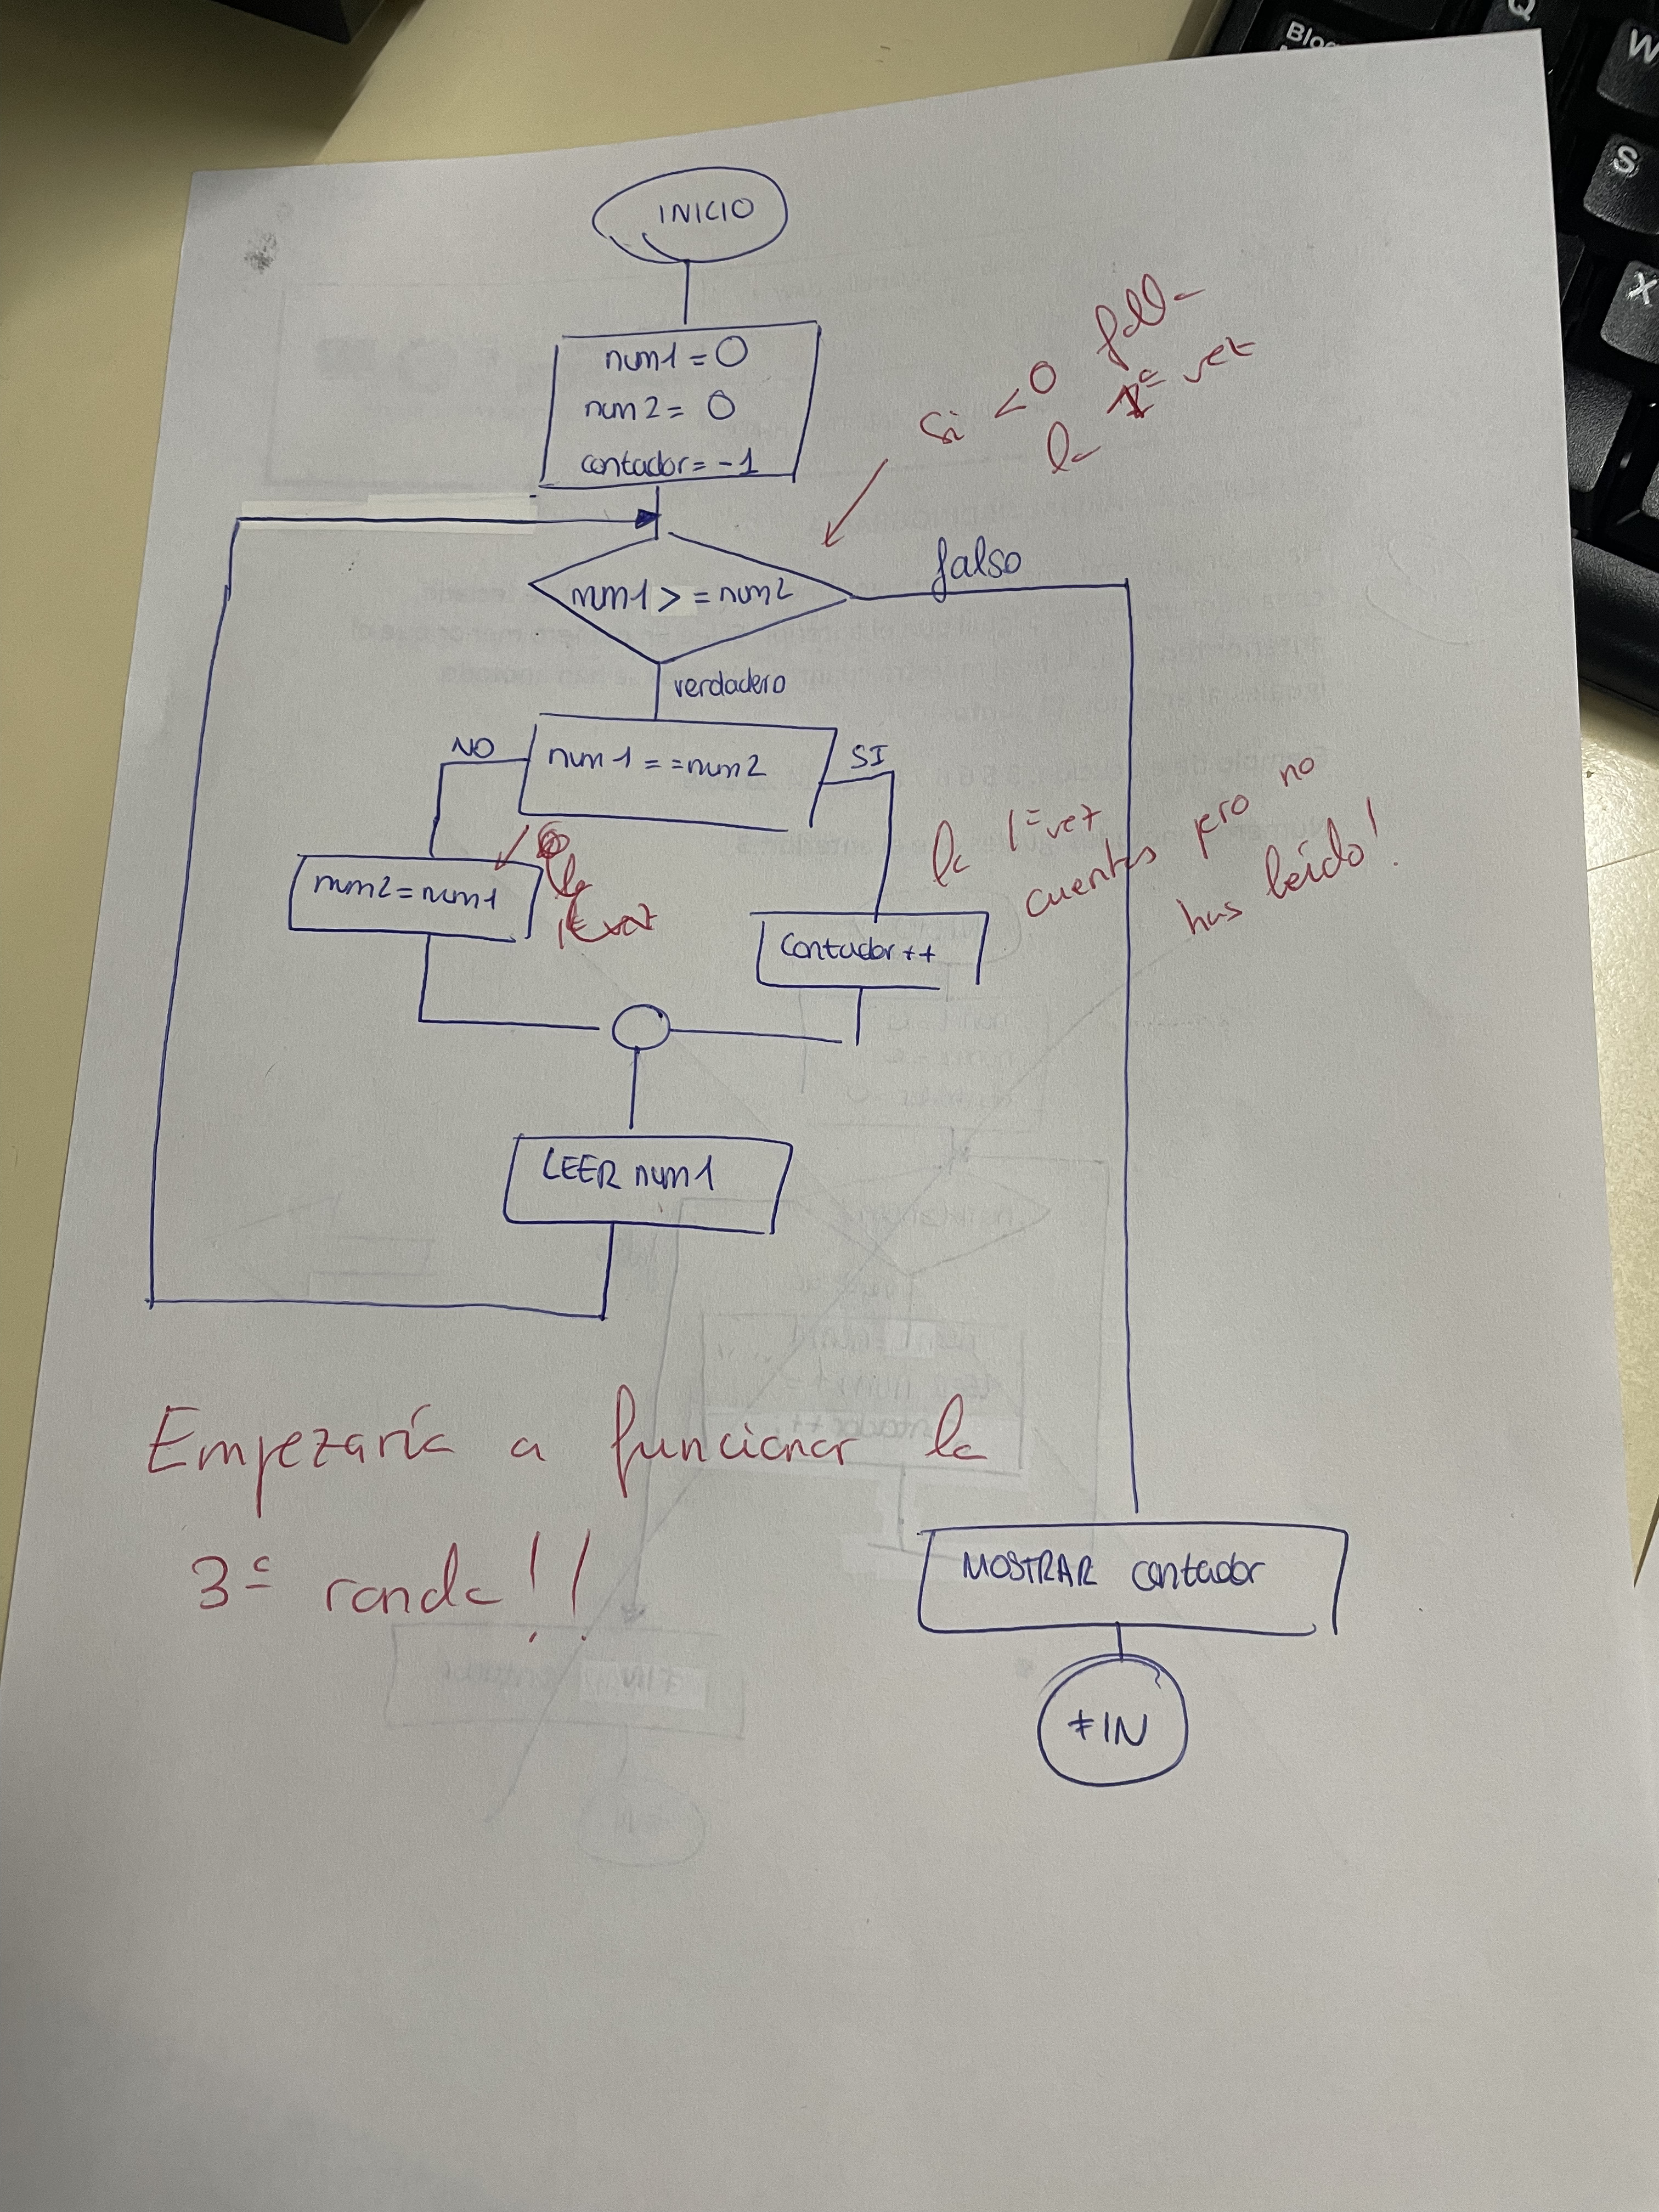 INICIO
num1 = 0
num2 = 0
contador = -1
Si <0 falla
la 1ª vez
num1 > = num2
falso
verdadero
num1 = = num2
NO
SI
num2 = num1
la
1ª vez
contador ++
la 1ª vez
cuentas pero no
has leído!
LEER num1
Empezaría a funcionar la
3ª ronda!!
MOSTRAR contador
FIN
Q
W
S
X